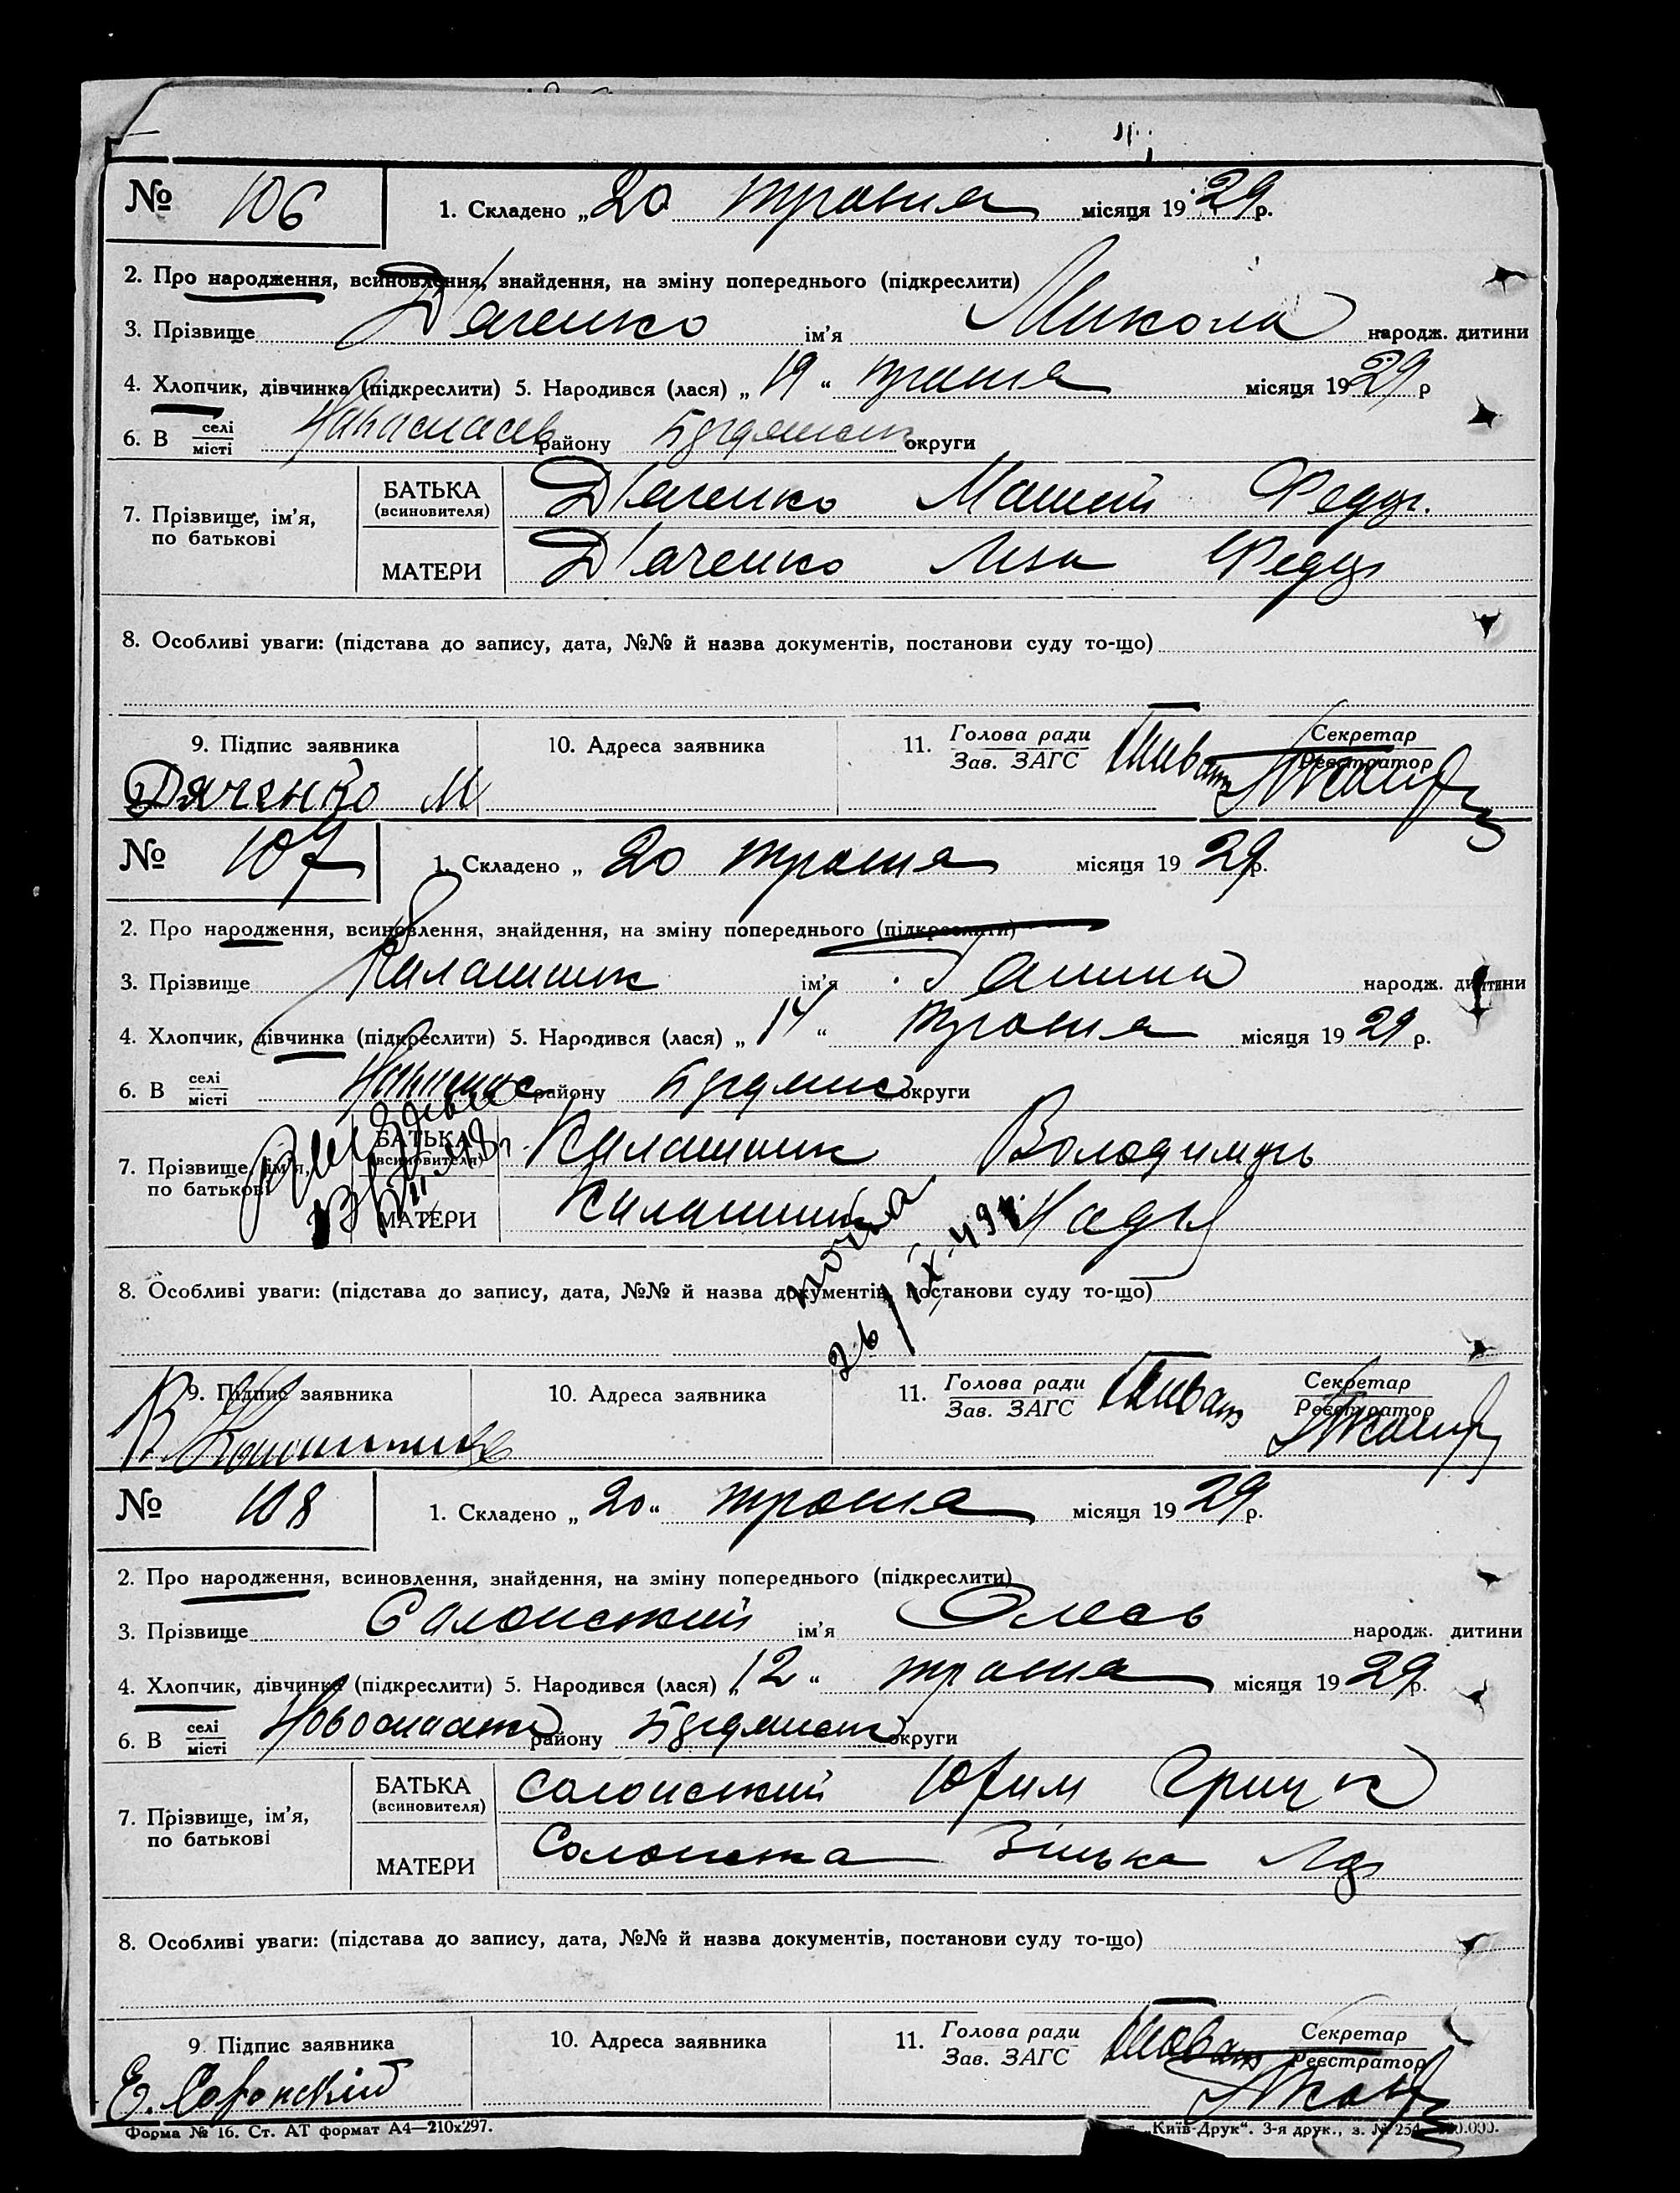 № 106 1. Складено „20 травня місяця 1929 р.
2. Про народження, всиновлення, знайдення, на зміну попереднього (підкреслити)
3. Прізвище Дяченко ім'я Микола народж. дитини
4. Хлопчик, дівчинка (підкреслити) 5. Народився (лася) „19“ травня місяця 1929 р
6. В селі місті району округи
7. Прізвище, ім'я, по батькові
БАТЬКА (всиновителя) Дяченко Федур.
МАТЕРИ Дяченко Ліза Федур
8. Особливі уваги: (підстава до запису, дата, №№ й назва документів, постанови суду то-що)
9. Підпис заявника 10. Адреса заявника 11. Голова ради Зав. ЗАГС Секретар Реєстратор
Дяченко М
№ 107 1. Складено „20 травня місяця 1929 р.
2. Про народження, всиновлення, знайдення, на зміну попереднього (підкреслити)
3. Прізвище Калашник ім'я Ганна народж. дитини
4. Хлопчик, дівчинка (підкреслити) 5. Народився (лася) „14“ травня місяця 1929 р.
6. В селі місті району округи
7. Прізвище, ім'я, по батькові
БАТЬКА (всиновителя) Калашник Володимир
МАТЕРИ Калашник Надя
26/IX-49
8. Особливі уваги: (підстава до запису, дата, №№ й назва документів, постанови суду то-що)
9. Підпис заявника 10. Адреса заявника 11. Голова ради Зав. ЗАГС Секретар Реєстратор
№ 108 1. Складено „20“ травня місяця 1929 р.
2. Про народження, всиновлення, знайдення, на зміну попереднього (підкреслити)
3. Прізвище Солонський ім'я Олесь народж. дитини
4. Хлопчик, дівчинка (підкреслити) 5. Народився (лася) „12“ травня місяця 1929 р.
6. В селі місті району округи
7. Прізвище, ім'я, по батькові
БАТЬКА (всиновителя) Солонський Юхим Грицк
МАТЕРИ Солонська Зінька
8. Особливі уваги: (підстава до запису, дата, №№ й назва документів, постанови суду то-що)
9. Підпис заявника 10. Адреса заявника 11. Голова ради Зав. ЗАГС Секретар Реєстратор
Е. Солонский
Форма № 16. Ст. АТ формат А4—210х297. „Київ-Друк“. 3-я друк., з. №